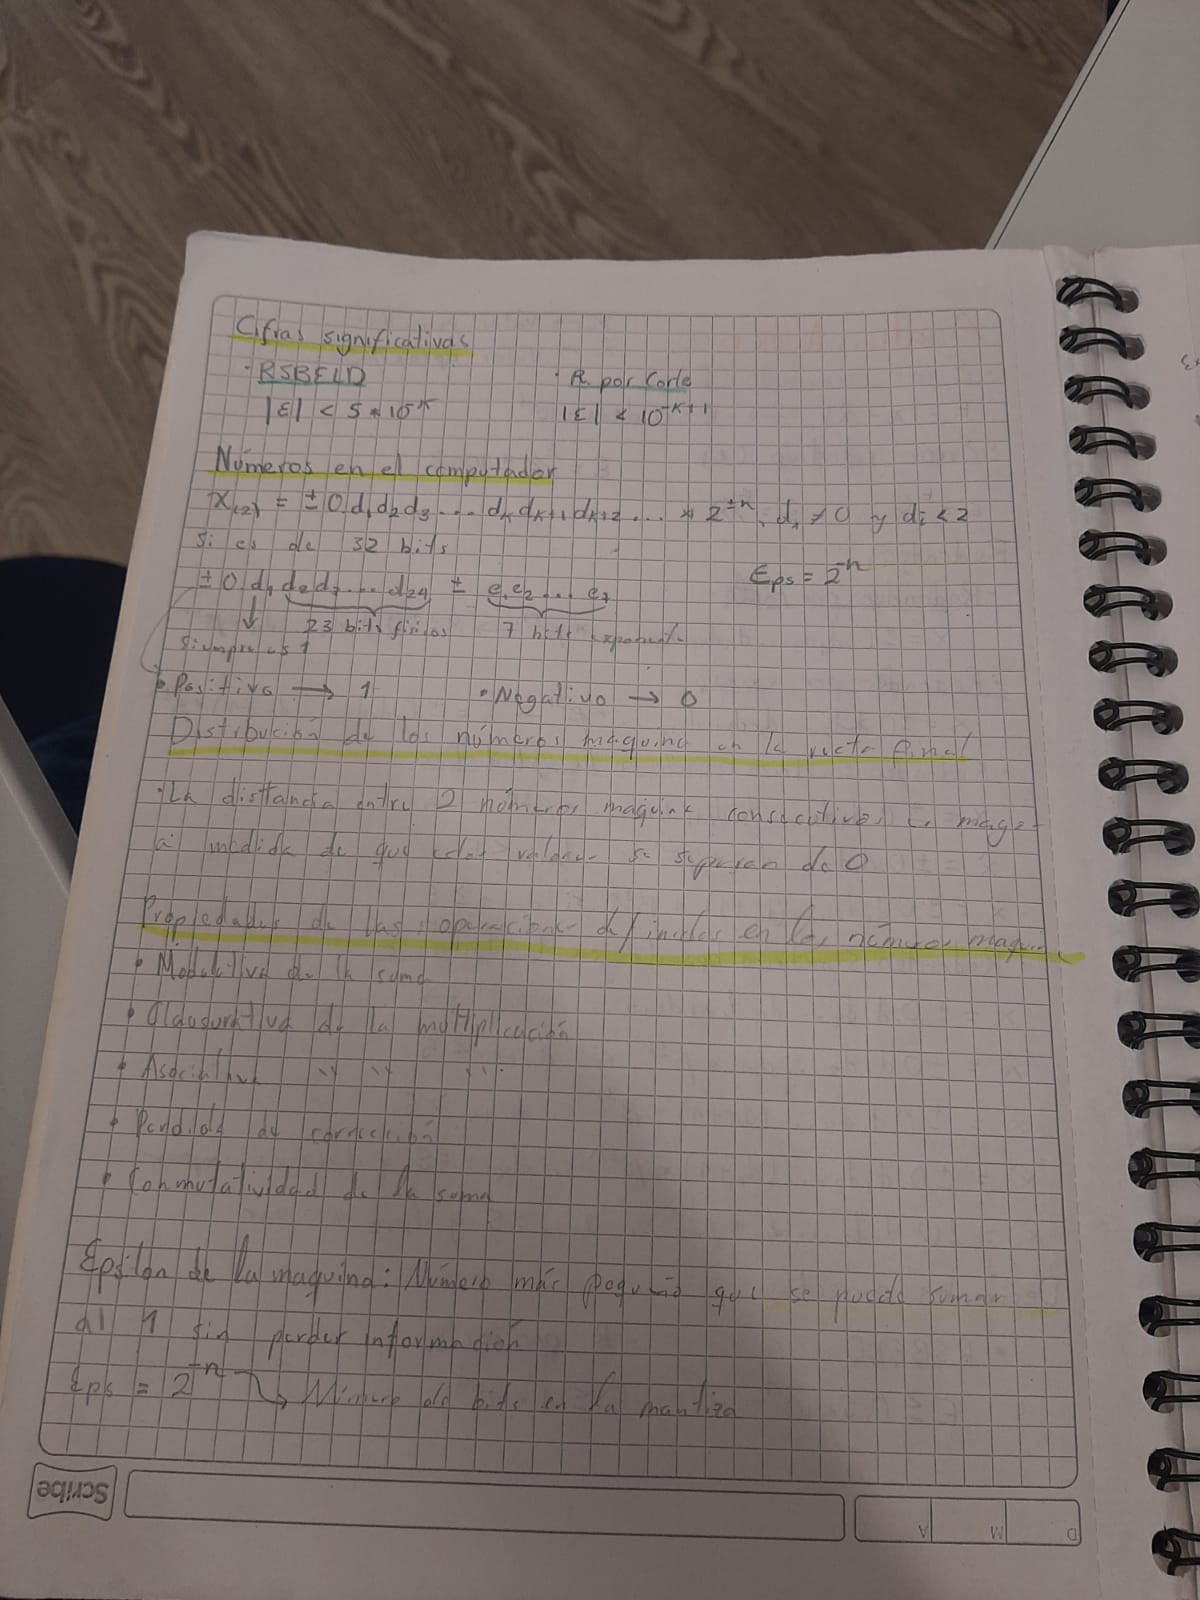 Cifras significativas
· RSBELD · R. por Corte
|ε| < 5 * 10^-k |ε| < 10^-k+1
Números en el computador
X(2) = ± 0.d1d2d3...dk dk+1 dk+2... * 2^±n, d1 ≠ 0 y di < 2
Si es de 32 bits
Eps = 2^-n
± 0.d1 d2d3...d24 ± e1e2...e7
23 bits físicos 7 bits exponente
Siempre es 1
• Positivo → 1 • Negativo → 0
Distribución de los números maquina en la recta final
· La distancia entre 2 números maquina consecutivos es mayor
a medida de que estos valores se separan de 0
Propiedades de las operaciones definidas en los números maquina
• Modulativa de la suma
• Clausurativa de la multiplicación
• Asociativa '' '' ''
• Perdida de corrección
• Conmutatividad de la suma
Epsilon de la maquina: Número más pequeño que se puede sumar
al 1 sin perder información
Eps = 2^-n → Número de bits en la mantiza
Scribe
A M D